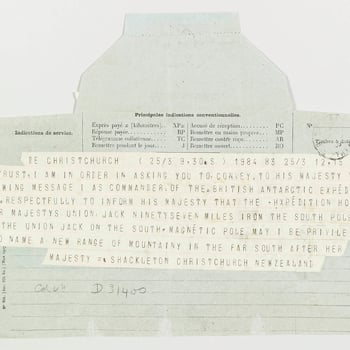 Principales indications conventionnelles.
Indications de service.
Exprès payé Accusé de réception, PC
Réponse payée, RP Remettre en mains propres, MP
Télégramme collationné, TC Remettre contre reçu, AR
Remettre pendant le jour, J Remettre ouvert, RO
DE CHRISTCHURCH (25/3 9.30.S) 1984 83 25/3 12.15
TRUST I AM IN ORDER IN ASKING YOU TO CONVEY TO HIS MAJESTY
WING MESSAGE I AS COMMANDER OF THE BRITISH ANTARCTIC EXPED
RESPECTFULLY TO INFORM HIS MAJESTY THAT THE EXPEDITION HO
R MAJESTYS UNION JACK NINETYSEVEN MILES FROM THE SOUTH POL
THE UNION JACK ON THE SOUTH MAGNETIC POLE MAY I BE PRIVILE
O NAME A NEW RANGE OF MOUNTAINY IN THE FAR SOUTH AFTER HER
MAJESTY = SHACKLETON CHRISTCHURCH NEWZEALAND
D 31400